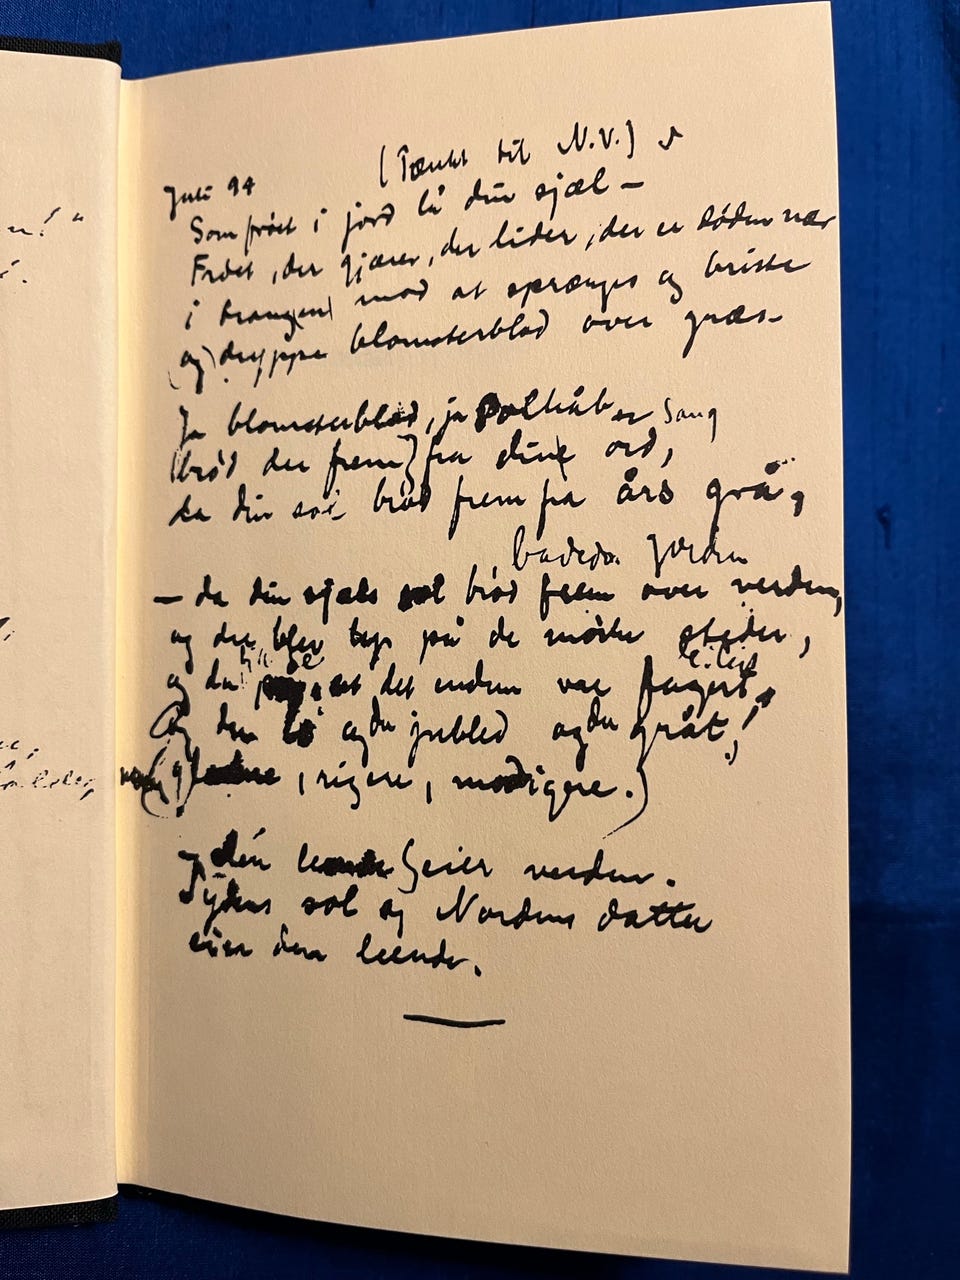 n!"
Juli 94
(Tænkt til N.V.)
Som frøet i jord lå din sjæl –
Frøet, der gjærer, der lider, der er døden nær
i trangen mod at sprænges og briste
(og) dryppe blomsterblod over græs –
Ja blomsterblod, ja solhåb sang
(brød der frem) fra dine ord,
da din sol brød frem fra års grå,
badede Jorden
– da din sjæls sol brød frem over verden,
og der blev lys på de mørke steder,
og du at det endnu var fagert,
Og du lo og du jubled og du gråt!
rigere, modigere.)
og dén eier verden.
Sydens sol og Nordens datter
eier den leende.